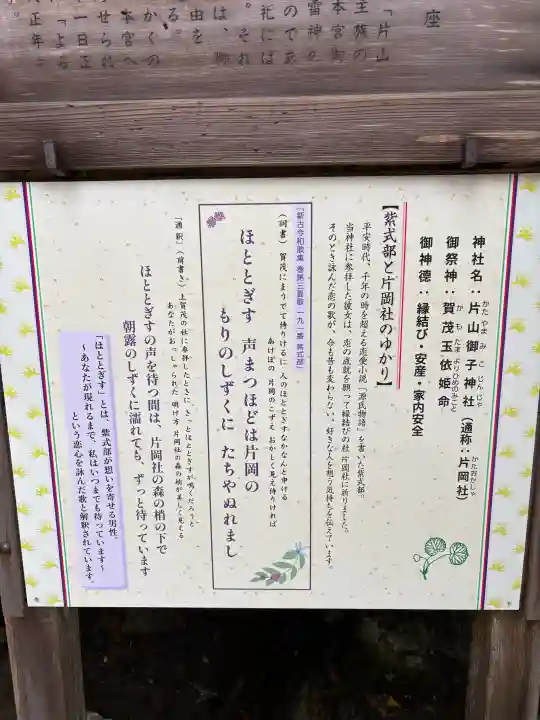 座
「片山
主族の
本宮御
雷神の
のであ
祀には
。それ
は、御
由を
る。
かくの
本宮へ
せられ
一日正
「よら
正年
神社名：片山御子神社（通称：片岡社）
かた やま み こ じんじゃ
かたおかしゃ
御祭神：賀茂玉依姫命
か も たま よりひめのみこと
御神徳：縁結び・安産・家内安全
【紫式部と片岡社のゆかり】
平安時代、千年の時を超える恋愛小説「源氏物語」を書いた紫式部。
当神社に参拝した彼女は、恋の成就を願って縁結びの社 片岡社に祈りました。
そのとき詠んだ恋の歌が、今も昔も変わらない、好きな人を想う気持ちを伝えています。
「新古今和歌集 巻第三夏歌 一九一番 紫式部」
〈詞書〉賀茂にまうでて侍りけるに 人のほととぎすなかなんと申ける
あけぼの 片岡のこずえ おかしく見え侍りければ
ほととぎす 声まつほどは片岡の
もりのしずくに たちやぬれまし
「通釈」〈詞書き〉上賀茂の社に参拝したときに、さっとほととぎすが鳴くだろうと
あなたがおっしゃられた 明け方 片岡社の森の梢が美しく見える
ほととぎすの声を待つ間は、片岡社の森の梢の下で
朝露のしずくに濡れても、ずっと待っています
「ほととぎす」とは、紫式部が想いを寄せる男性。
〜あなたが現れるまで、私はいつまでも待っています〜
という恋心を詠んだ歌と解釈されています。